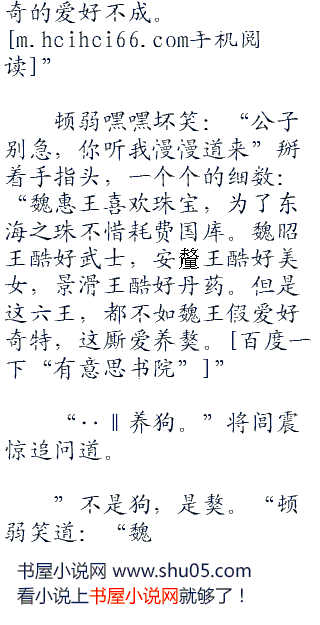 奇的爱好不成。
[m.hcihci66.com手机阅
读]”
顿弱嘿嘿坏笑：“公子
别急，你听我慢慢道来”掰
着手指头，一个个的细数：
“魏惠王喜欢珠宝，为了东
海之珠不惜耗费国库。魏昭
王酷好武士，安釐王酷好美
女，景滑王酷好丹药。但是
这六王，都不如魏王假爱好
奇特，这厮爱养獒。[百度一
下“有意思书院”]”
“··‖养狗。”将闾震
惊追问道。
”不是狗，是獒。“顿
弱笑道：“魏
书屋小说网 www.shu05.com
看小说上书屋小说网就够了！